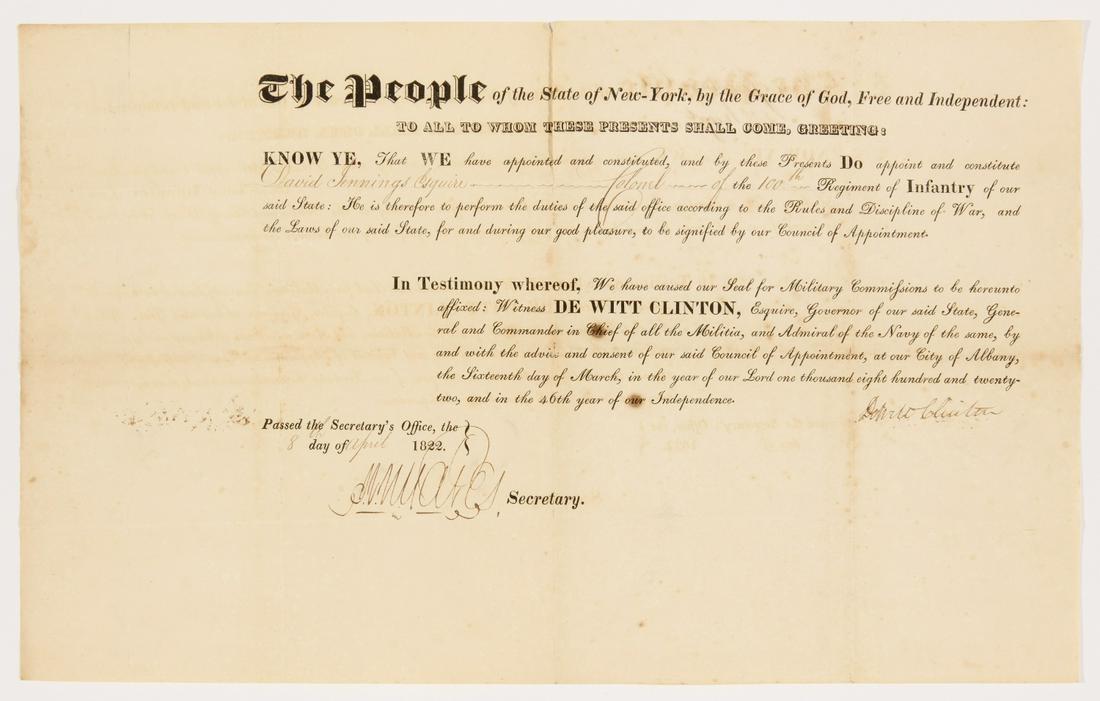 The People of the State of New-York, by the Grace of God, Free and Independent:
TO ALL TO WHOM THESE PRESENTS SHALL COME, GREETING:
KNOW YE, That WE have appointed and constituted, and by these Presents Do appoint and constitute
David Jennings Esquire Colonel of the 100th Regiment of Infantry of our
said State: He is therefore to perform the duties of the said office according to the Rules and Discipline of War, and
the Laws of our said State, for and during our good pleasure, to be signified by our Council of Appointment.
In Testimony whereof, We have caused our Seal for Military Commissions to be hereunto
affixed: Witness DE WITT CLINTON, Esquire, Governor of our said State, Gene-
ral and Commander in Chief of all the Militia, and Admiral of the Navy of the same, by
and with the advice and consent of our said Council of Appointment, at our City of Albany,
the Sixteenth day of March, in the year of our Lord one thousand eight hundred and twenty-
two, and in the 46th year of our Independence.
DeWitt Clinton
Passed the Secretary's Office, the
8 day of April 1822.
Secretary.